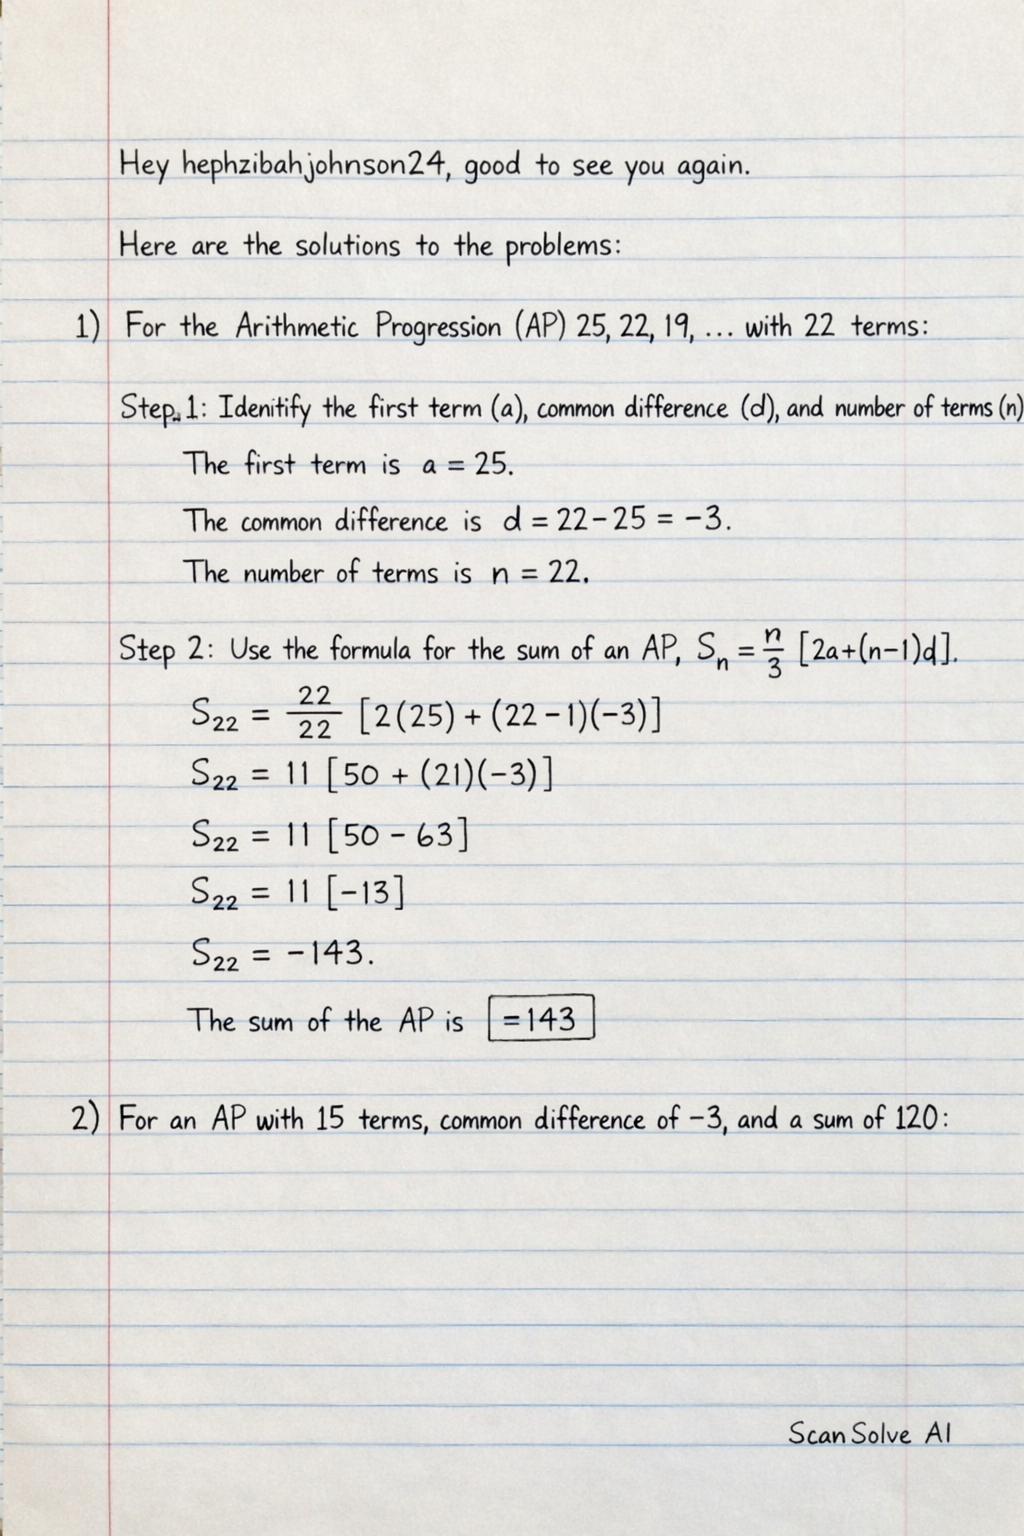 Hey hephzibahjohnson24, good to see you again.
Here are the solutions to the problems:
1) For the Arithmetic Progression (AP) 25, 22, 19, ... with 22 terms:
Step. 1: Idenitify the first term (a), common difference (d), and number of terms (n)
The first term is a = 25.
The common difference is d = 22 − 25 = −3.
The number of terms is n = 22.
Step 2: Use the formula for the sum of an AP, Sₙ = n/3 [2a+(n−1)d].
S₂₂ = 22/22 [2(25) + (22 − 1)(−3)]
S₂₂ = 11 [50 + (21)(−3)]
S₂₂ = 11 [50 − 63]
S₂₂ = 11 [−13]
S₂₂ = −143.
The sum of the AP is =143
2) For an AP with 15 terms, common difference of −3, and a sum of 120:
ScanSolve AI